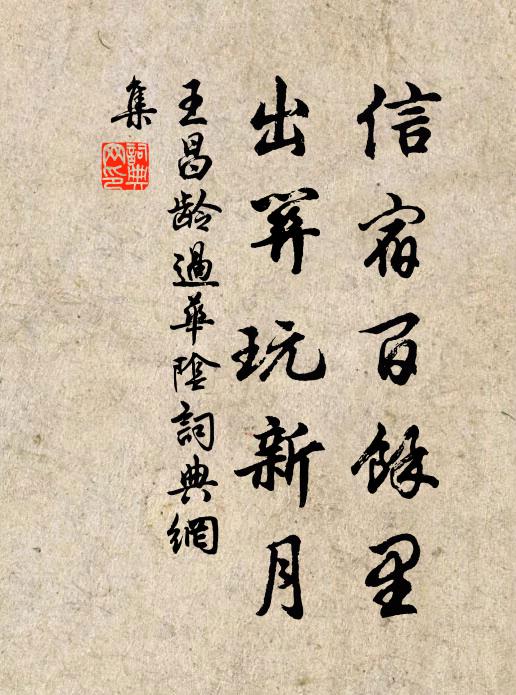 信宿百餘里
出關玩新月
王昌齡過華陰詞典網
集
詞典網印